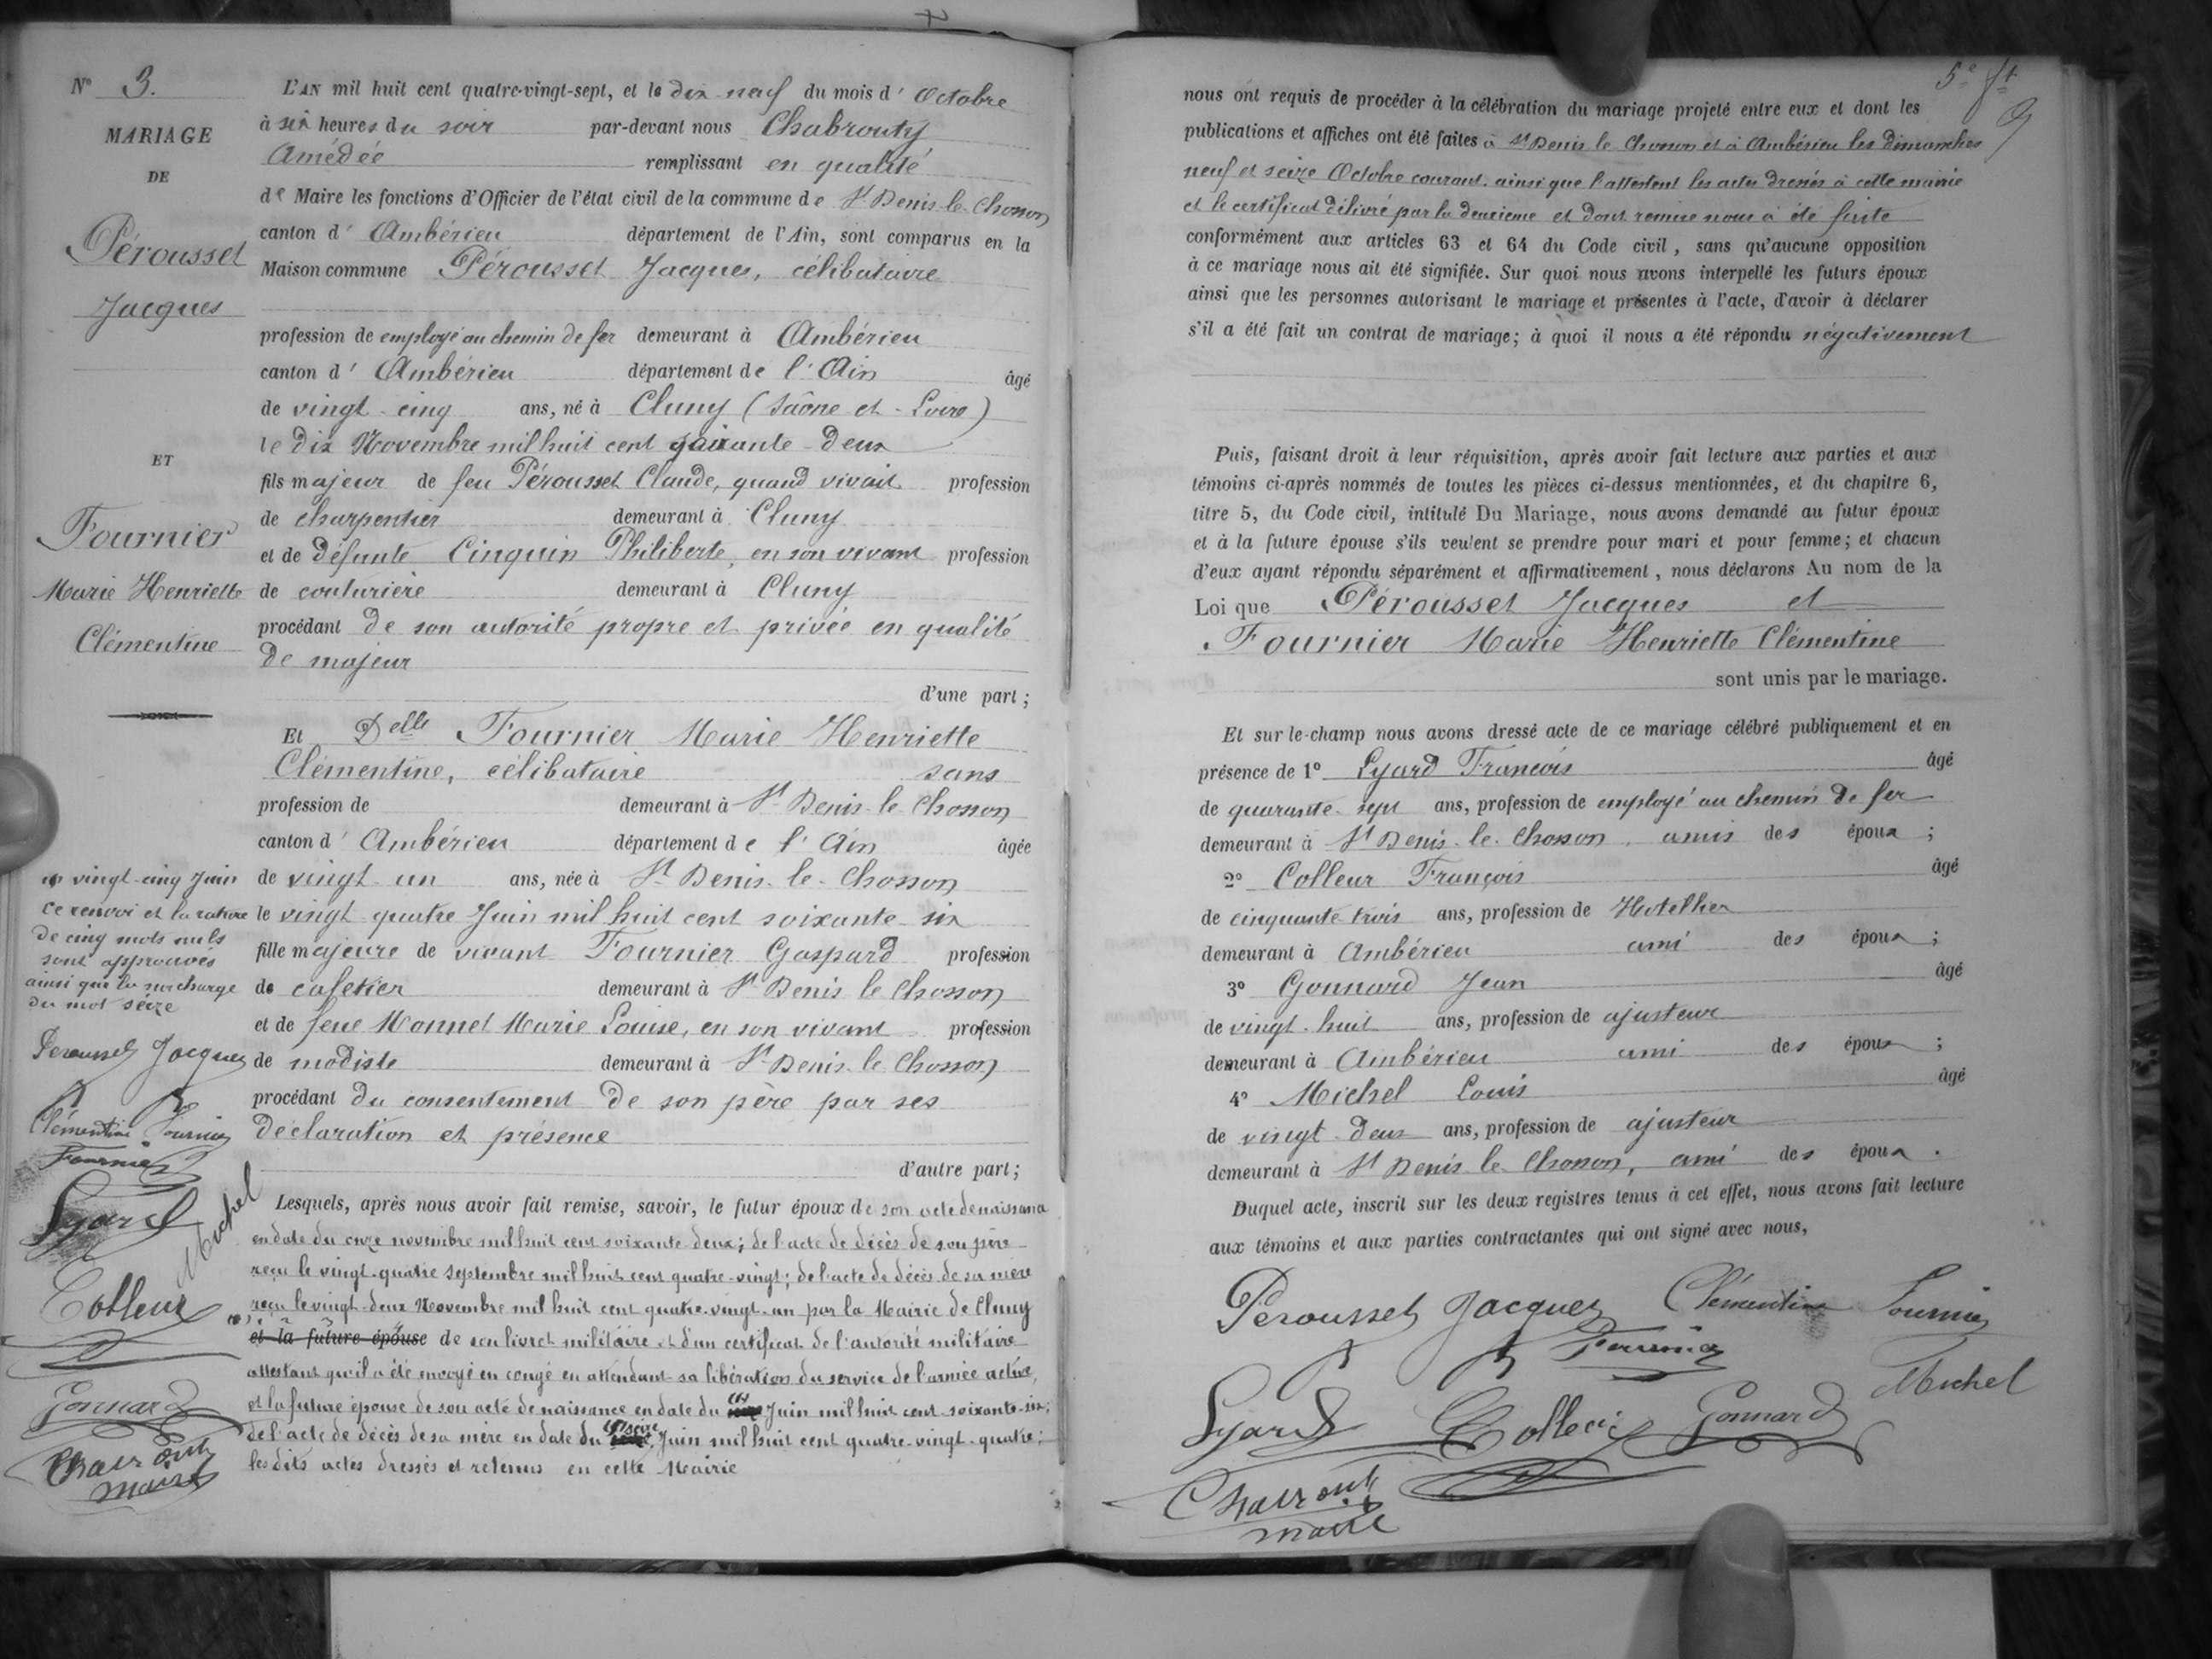 N° 3.
MARIAGE
DE
Pérousset
Jacques
ET
Fournier
Marie Henriette
Clémentine
vingt-cinq Juin
ce renvoi et la rature
de cinq mots nuls
sont approuvés
ainsi que la surcharge
du mot seize
Perousset Jacques
Clémentine Fournier
Fournier
Lyard
Michel
Colleur
Gonnard
maire
L'AN mil huit cent quatre-vingt-sept, et le dix-neuf du mois d'Octobre
à six heures du soir par-devant nous Chabrouty
Amédée remplissant en qualité
de Maire les fonctions d'Officier de l'état civil de la commune de St Denis-le-Chosson
canton d'Ambérieu département de l'Ain, sont comparus en la
Maison commune Pérousset Jacques, célibataire
profession de employé au chemin de fer demeurant à Ambérieu
canton d'Ambérieu département de l'Ain âgé
de vingt-cinq ans, né à Cluny (Saône-et-Loire)
le dix Novembre mil huit cent soixante-deux
fils majeur de feu Pérousset Claude, quand vivait profession
de charpentier demeurant à Cluny
et de défunte Cinquin Philiberte, en son vivant profession
de couturière demeurant à Cluny
procédant de son autorité propre et privée en qualité
de majeur
d'une part;
Et Delle Fournier Marie Henriette
Clémentine, célibataire sans
profession de demeurant à St Denis-le-Chosson
canton d'Ambérieu département de l'Ain âgée
de vingt-un ans, née à St Denis-le-Chosson
le vingt-quatre Juin mil huit cent soixante-six
fille majeure de vivant Fournier Gaspard profession
de cafetier demeurant à St Denis le Chosson
et de feue Monnet Marie Louise, en son vivant profession
de modiste demeurant à St Denis-le-Chosson
procédant du consentement de son père par ses
déclaration et présence
d'autre part;
Lesquels, après nous avoir fait remise, savoir, le futur époux de son acte de naissance
en date du onze novembre mil huit cent soixante-deux; de l'acte de décès de son père
reçu le vingt-quatre septembre mil huit cent quatre-vingt; de l'acte de décès de sa mère
reçu le vingt-deux Novembre mil huit cent quatre-vingt-un par la Mairie de Cluny
et la future épouse de son livret militaire et d'un certificat de l'autorité militaire
attestant qu'il a été envoyé en congé en attendant sa libération du service de l'armée active,
et la future épouse de son acte de naissance en date du Juin mil huit cent soixante-six;
de l'acte de décès de sa mère en date du seize Juin mil huit cent quatre-vingt-quatre;
les dits actes dressés et retenus en cette Mairie
5e ft
9
nous ont requis de procéder à la célébration du mariage projeté entre eux et dont les
publications et affiches ont été faites à St Denis le Chosson et à Ambérieu les dimanches
neuf et seize Octobre courant. ainsi que l'attestent les actes dressés à cette mairie
et le certificat délivré par la deuxième et dont remise nous a été faite
conformément aux articles 63 et 64 du Code civil, sans qu'aucune opposition
à ce mariage nous ait été signifiée. Sur quoi nous avons interpellé les futurs époux
ainsi que les personnes autorisant le mariage et présentes à l'acte, d'avoir à déclarer
s'il a été fait un contrat de mariage; à quoi il nous a été répondu négativement
Puis, faisant droit à leur réquisition, après avoir fait lecture aux parties et aux
témoins ci-après nommés de toutes les pièces ci-dessus mentionnées, et du chapitre 6,
titre 5, du Code civil, intitulé Du Mariage, nous avons demandé au futur époux
et à la future épouse s'ils veulent se prendre pour mari et pour femme; et chacun
d'eux ayant répondu séparément et affirmativement, nous déclarons Au nom de la
Loi que Pérousset Jacques et
Fournier Marie Henriette Clémentine
sont unis par le mariage.
Et sur-le-champ nous avons dressé acte de ce mariage célébré publiquement et en
présence de 1° Lyard François âgé
de quarante-sept ans, profession de employé au chemin de fer
demeurant à St Denis-le-Chosson, amis des époux;
2° Colleur François âgé
de cinquante trois ans, profession de Hotellier
demeurant à Ambérieu ami des époux;
3° Gonnard Jean âgé
de vingt-huit ans, profession de ajusteur
demeurant à Ambérieu ami des époux;
4° Michel Louis âgé
de vingt-deux ans, profession de ajusteur
demeurant à St Denis le Chosson, ami des époux.
Duquel acte, inscrit sur les deux registres tenus à cet effet, nous avons fait lecture
aux témoins et aux parties contractantes qui ont signé avec nous,
Perousset Jacques Clémentine Fournier
Fournier
Michel
Lyard Colleur Gonnard
maire